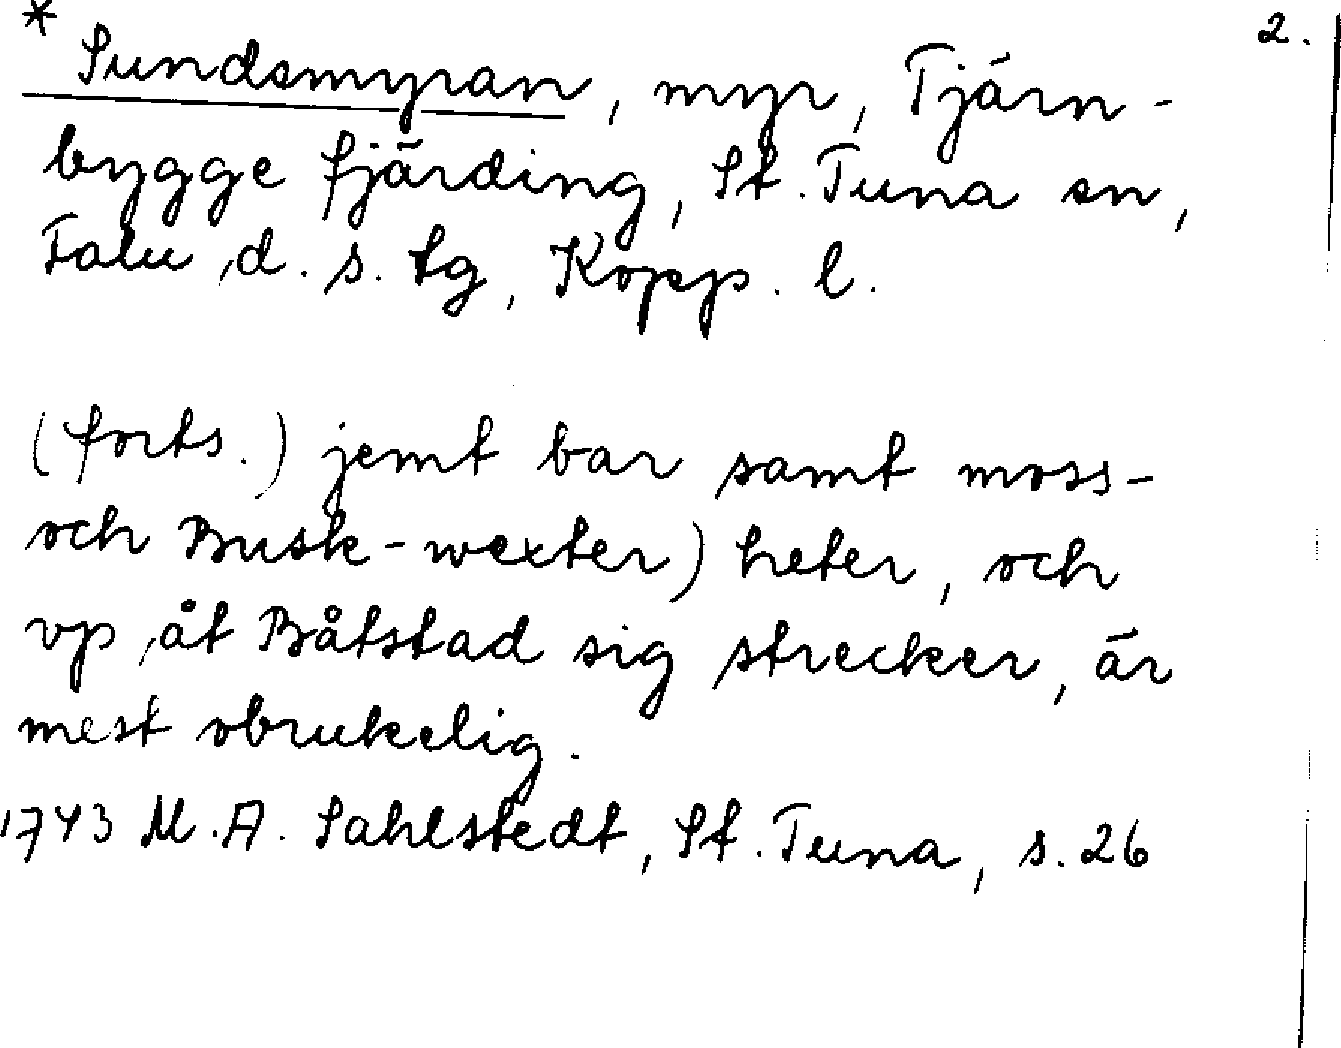 * Sundsmyran, myr, Tjärn- 2.
bygge fjärding, St. Tuna sn,
Falu d. s. tg, Kopp. l.
(forts.) jemt bar samt moss-
och Busk-wexter) heter, och
vp åt Båtstad sig strecker, är
mest obrukelig.
1743 M.A. Sahlstedt, St. Tuna, s. 26